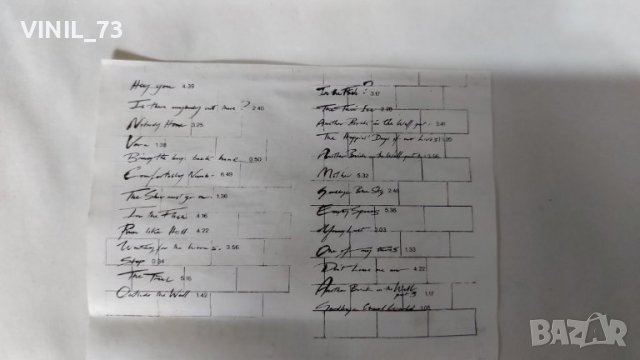 VINIL_73
Hey you 4.39
Is there anybody out there? 2.40
Nobody Home 3.25
Vera 1.38
Bring the boys back home 0.50
Comfortably Numb 6.49
The Show must go on 1.36
In the Flesh 4.16
Run like Hell 4.22
Waiting for the worms 3.56
Stop 0.34
The Trial 5.16
Outside the Wall 1.42
In the Flesh? 3.17
The Thin Ice 2.28
Another Brick in the Wall part 1 3.41
The Happiest Days of our Lives 1.20
Another Brick in the Wall part 2 3.56
Mother 5.32
Goodbye Blue Sky 2.48
Empty Spaces 5.36
Young Lust 2.03
One of my turns 1.33
Don't Leave me now 4.22
Another Brick in the Wall part 3 1.17
Goodbye Cruel World 1.05
BAZAR
bg